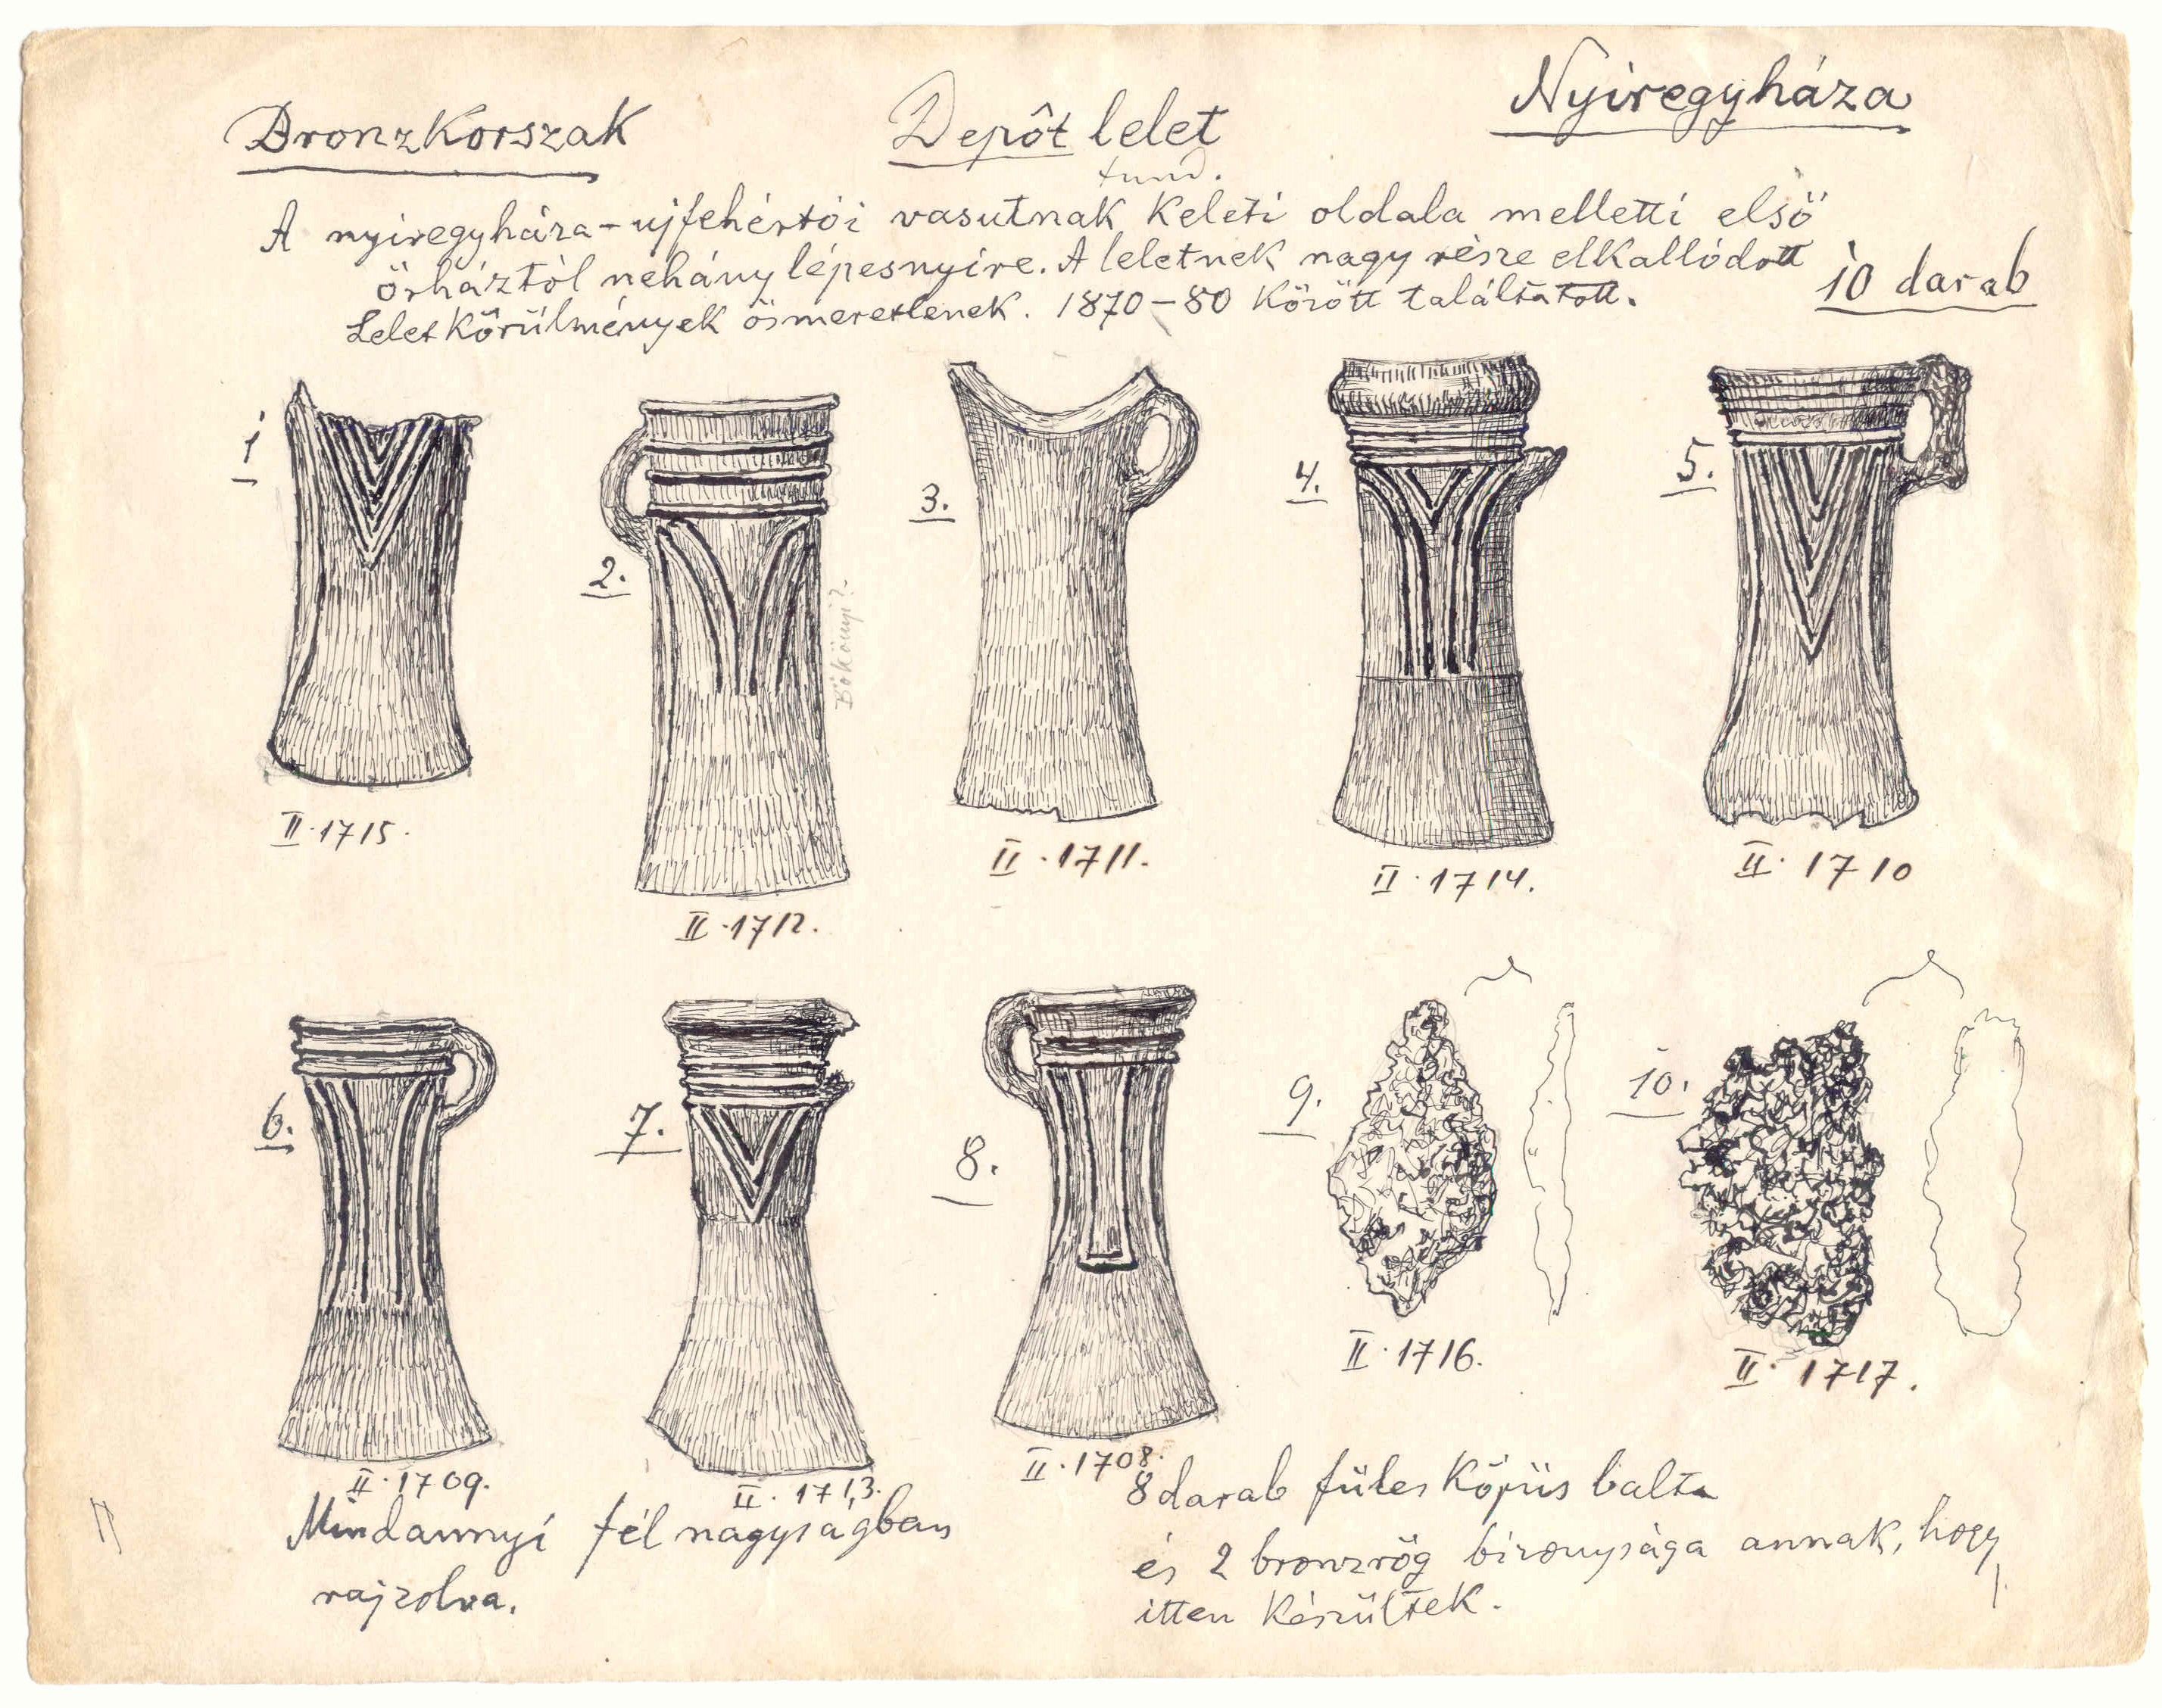 Bronzkorszak
Depôt lelet
Nyiregyháza
A nyiregyháza-ujfehértói vasutnak keleti oldala melletti első
őrháztól nehány lépesnyire. A leletnek nagy része elkallódott
10 darab
Lelet körülmények ösmeretlenek. 1870-80 között találtatott.
1
2.
3.
4.
5.
Bökönyi?
II. 1715.
II. 1712.
II. 1711.
II. 1714.
II. 1710
6.
7.
8.
9.
10.
II. 1709.
II. 1713.
II. 1708.
II. 1716.
II. 1717.
Mindannyi fél nagyságban
rajzolva.
8 darab füles köpüs balta
és 2 bronzrög bizonysága annak, hogy
itten készültek.